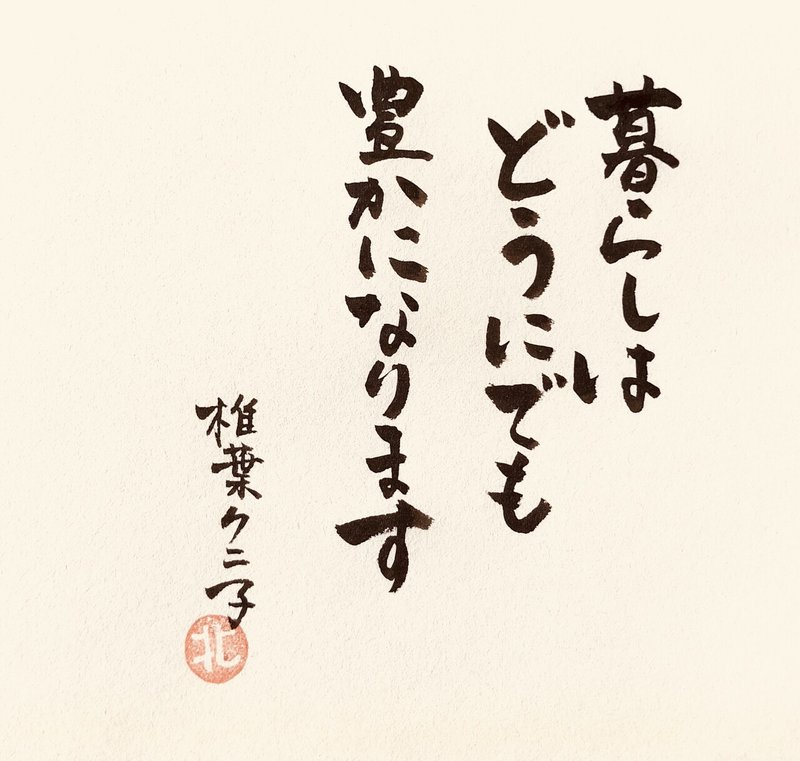 暮らしは
どうにでも
豊かになります
椎葉クニ子
北